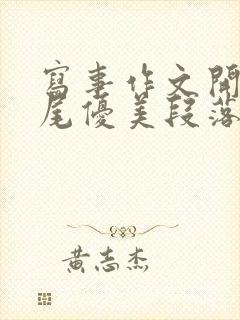 寫事作文開
尾優美段落
黃志杰